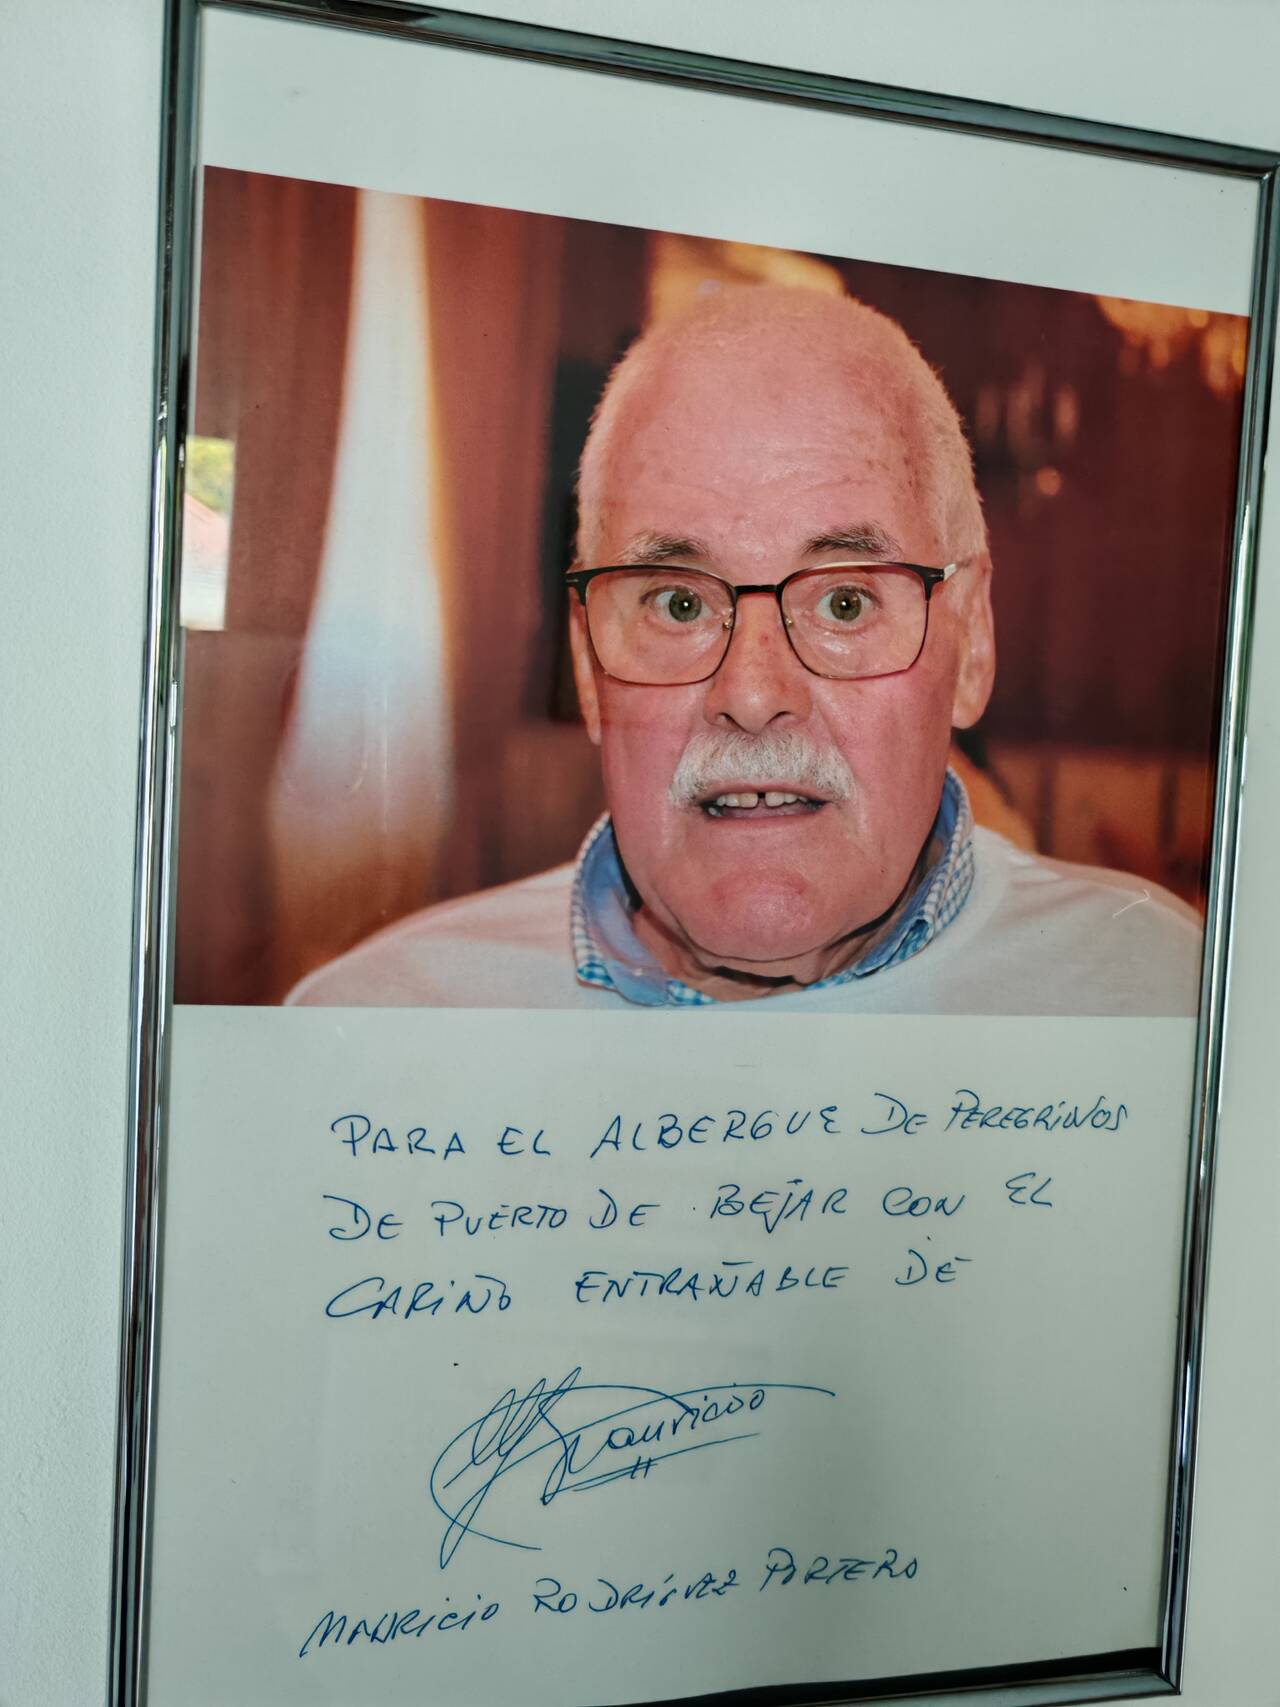 PARA EL ALBERGUE DE PEREGRINOS
DE PUERTO DE BEJAR CON EL
CARIÑO ENTRAÑABLE DE
Mauricio
MAURICIO RODRÍGUEZ PORTERO